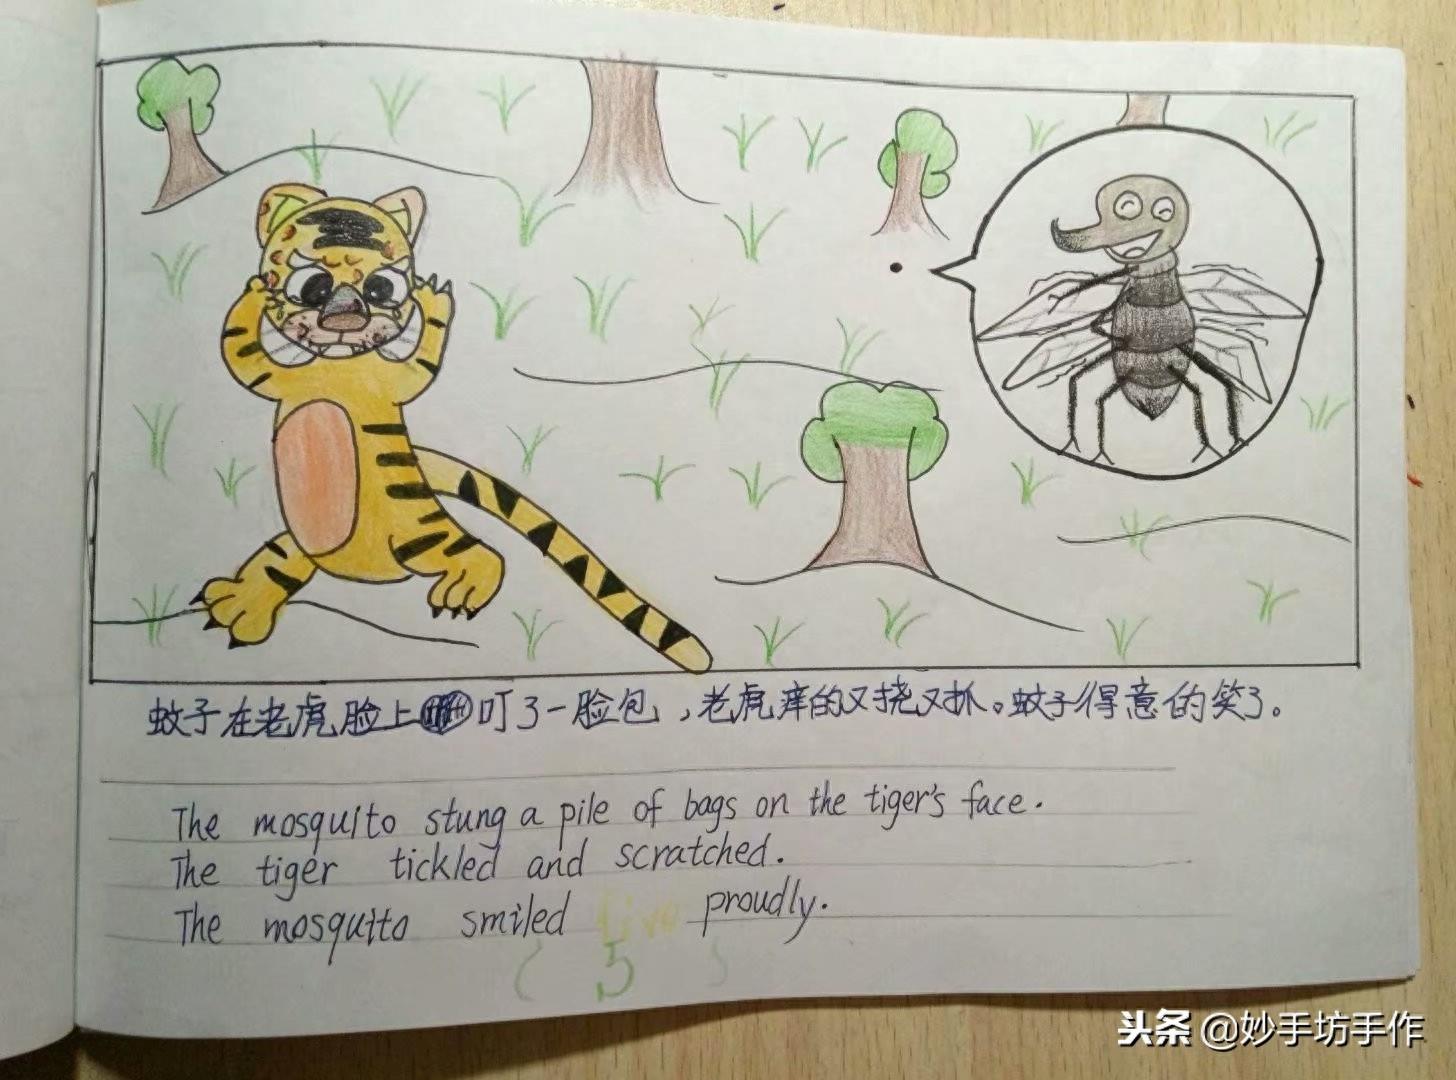 蚊子在老虎脸上叮了一脸包，老虎痒的又挠又抓。蚊子得意的笑了。
The mosquito stung a pile of bags on the tiger's face.
The tiger tickled and scratched.
The mosquito smiled five proudly.
5
头条 @妙手坊手作